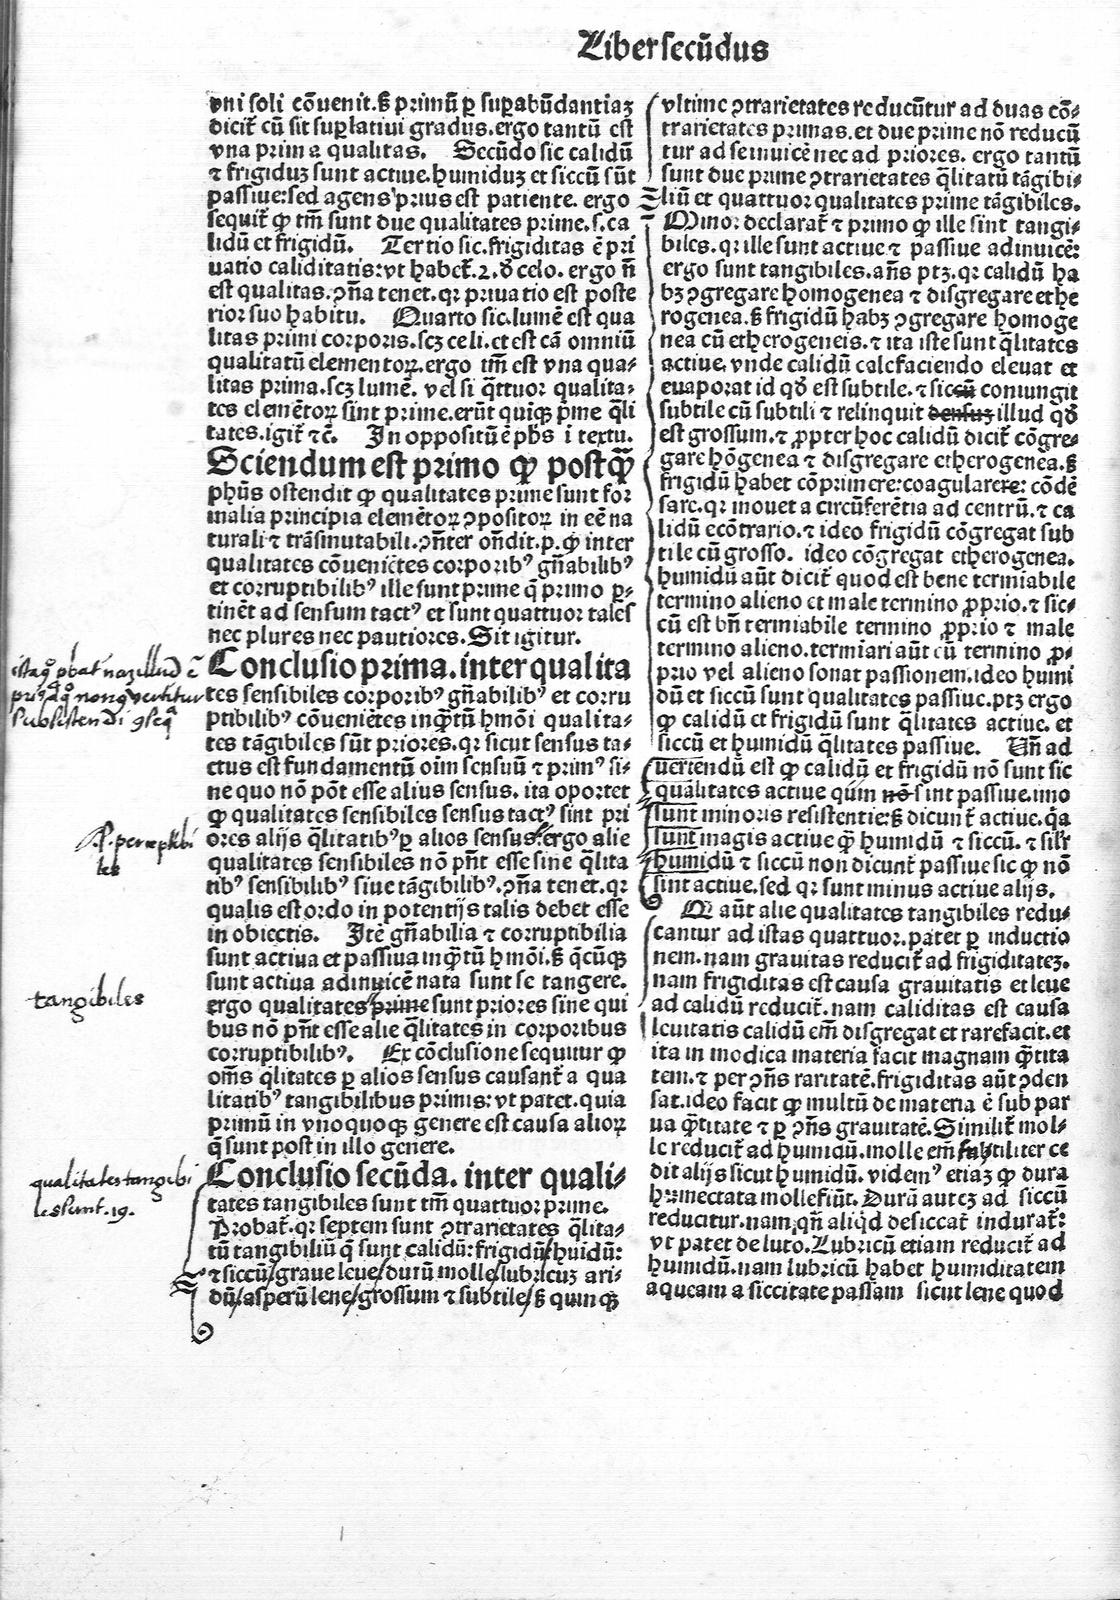 Liber secūdus
vni soli cōuenit. sꝫ primū ꝑ suꝑabūdantiaꝫ
dicit̃ cū sit suꝑlatiui gradus. ergo tantū est
vna prima qualitas. Secūdo sic calidū
⁊ frigiduꝫ sunt actiue. humiduꝫ et siccū sūt
passiue: sed agens prius est patiente. ergo
sequit̃ ꝙ tm̄ sunt due qualitates prime. s. ca
lidū et frigidū. Tertio sic. frigiditas ē pri
uatio caliditatis: vt habet̃. 2. ď celo. ergo nō
est qualitas. ꝯña tenet. qꝛ priuatio est poste
rior suo habitu. Quarto sic. lumē est qua
litas primi corporis. scꝫ celi. et est cā omniū
qualitatū elementoꝝ. ergo tm̄ est vna qua-
litas prima. scꝫ lumē. vel si q̄ttuor qualita-
tes elemētoꝝ sint prime. erūt quinqꝫ p̄me q̄li
tates. igit̃ ⁊c̄. In oppositū ē ph̄s i textu.
Sciendum est primo ꝙ postq̄ꝫ
ph̄us ostendit ꝙ qualitates prime sunt for
malia principia elemētoꝝ ꝯpositoꝝ in eē na
turali ⁊ trāsmutabili. ꝯñter on̄dit. p. ꝙ inter
qualitates cōueniētes corporibꝰ gn̄abilibꝰ
et corruptibilibꝰ ille sunt prime q̄ primo ꝑ-
tinēt ad sensum tactꝰ et sunt quattuor tales
nec plures nec pautiores. Sit igitur.
Conclusio prima. inter qualita
tes sensibiles corporibꝰ gn̄abilibꝰ et corru
ptibilibꝰ cōueniētes inq̄ꝫtū hmōi qualita-
tes tāgibiles sūt priores. qꝛ sicut sensus ta-
ctus est fundamentū oim̄ sensuū ⁊ primꝰ si-
ne quo nō pōt esse alius sensus. ita oportet
ꝙ qualitates sensibiles sensus tactꝰ sint pri
ores alijs q̄litatibꝰ ꝑ alios sensus ergo alie
qualitates sensibiles nō pn̄t esse sine q̄lita
tibꝰ sensibilibꝰ siue tāgibilibꝰ. ꝯña tenet. qꝛ
qualis est ordo in potentijs talis debet esse
in obiectis. Itē gn̄abilia ⁊ corruptibilia
sunt actiua et passiua inq̄ꝫtū hmōi. sꝫ q̄cūqꝫ
sunt actiua adinuicē nata sunt se tangere.
ergo qualitates prime sunt priores sine qui
bus nō pn̄t esse alie q̄litates in corporibus
corruptibilibꝰ. Ex cōclusione sequitur ꝙ
om̄s q̄litates ꝑ alios sensus causant̃ a qua
litatibꝰ tangibilibus primis: vt patet. quia
primū in vnoquoqꝫ genere est causa alioꝝ
q̄ sunt post in illo genere.
Conclusio secūda. inter quali-
tates tangibiles sunt tm̄ quattuor prime.
Probat̃. qꝛ septem sunt ꝯtrarietates q̄lita-
tū tangibiliū q̄ sunt calidū: frigidū/huidū:
⁊ siccū/graue leue/durū molle/lubricuꝫ ari-
dū/asperū lene/grossum ⁊ subtile/sꝫ quinqꝫ
vltime ꝯtrarietates reducūtur ad duas cō-
trarietates primas. et due prime nō reducū
tur ad seinuicē nec ad priores. ergo tantū
sunt due prime ꝯtrarietates q̄litatū tāgibi-
liū et quattuor qualitates prime tāgibiles.
Minor declarat̃ ⁊ primo ꝙ ille sint tangi-
biles. qꝛ ille sunt actiue ⁊ passiue adinuicē:
ergo sunt tangibiles. an̄s ptꝫ. qꝛ calidū ha
bꝫ ꝯgregare homogenea ⁊ disgregare ethe
rogenea. sꝫ frigidū habꝫ ꝯgregare homoge
nea cū etherogeneis. ⁊ ita iste sunt q̄litates
actiue. vnde calidū calefaciendo eleuat et
euaporat id qď est subtile. ⁊ siccū coniungit
subtile cū subtili ⁊ relinquit densuꝫ illud qď
est grossum. ⁊ ꝓpter hoc calidū dicit̃ cōgre-
gare hōgenea ⁊ disgregare etherogenea. sꝫ
frigidū habet cōprimere: coagularere: cōdē
sare. qꝛ mouet a circūferētia ad centrū. ⁊ ca
lidū ecōtrario. ⁊ ideo frigidū cōgregat sub
tile cū grosso. ideo cōgregat etherogenea.
humidū aūt dicit̃ quod est bene termiabile
termino alieno et male termino ꝓprio. ⁊ sic-
cū est bn̄ termiabile termino ꝓprio ⁊ male
termino alieno. termiari aūt cū termino ꝓ-
prio vel alieno sonat passionem. ideo humi
dū et siccū sunt qualitates passiue. ptꝫ ergo
ꝙ calidū et frigidū sunt q̄litates actiue. et
siccū et humidū q̄litates passiue. Un̄ ad
uertendū est ꝙ calidū et frigidū nō sunt sic
qualitates actiue quin nō sint passiue. imo
sunt minoris resistentie: sꝫ dicunt̃ actiue. q̄a
sunt magis actiue q̄ꝫ humidū ⁊ siccū. ⁊ sil̃r
humidū ⁊ siccū non dicunt̃ passiue sic ꝙ nō
sint actiue. sed qꝛ sunt minus actiue alijs.
Q aūt alie qualitates tangibiles redu-
cantur ad istas quattuor. patet ꝑ inductio
nem. nam grauitas reducit̃ ad frigiditateꝫ.
nam frigiditas est causa grauitatis et leue
ad calidū reducit̃. nam caliditas est causa
leuitatis calidū em̄ disgregat et rarefacit. et
ita in modica materia facit magnam q̄ꝫtita
tem. ⁊ per ꝯñs raritatē. frigiditas aūt ꝯden
sat. ideo facit ꝙ multū de materia ē sub par
ua q̄ꝫtitate ⁊ ꝑ ꝯñs grauitatē. Similit̃ mol-
le reducit̃ ad humidū. molle em̄ tiliter ce
dit alijs sicut humidū. videmꝰ etiaꝫ ꝙ dura
humectata mollefiūt. Durū auteꝫ ad siccū
reducitur. nam qn̄ aliq̄d desiccat̃ indurat̃:
vt patet de luto. Lubricū etiam reducit̃ ad
humidū. nam lubricū habet humiditatem
aqueam a siccitate passam sicut lene quod
perceptibi
les
tangibiles
qualitates tangibi
les sunt. 19.